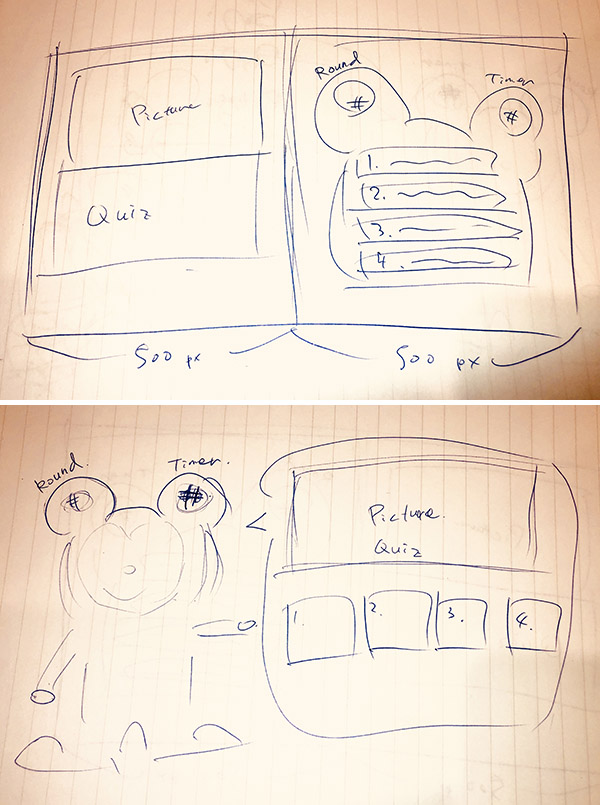 Picture
Quiz
Round
#
Timer
#
1.
2.
3.
4.
500 px
500 px
Round.
#
Timer.
#
Picture.
Quiz
1.
2.
3.
4.